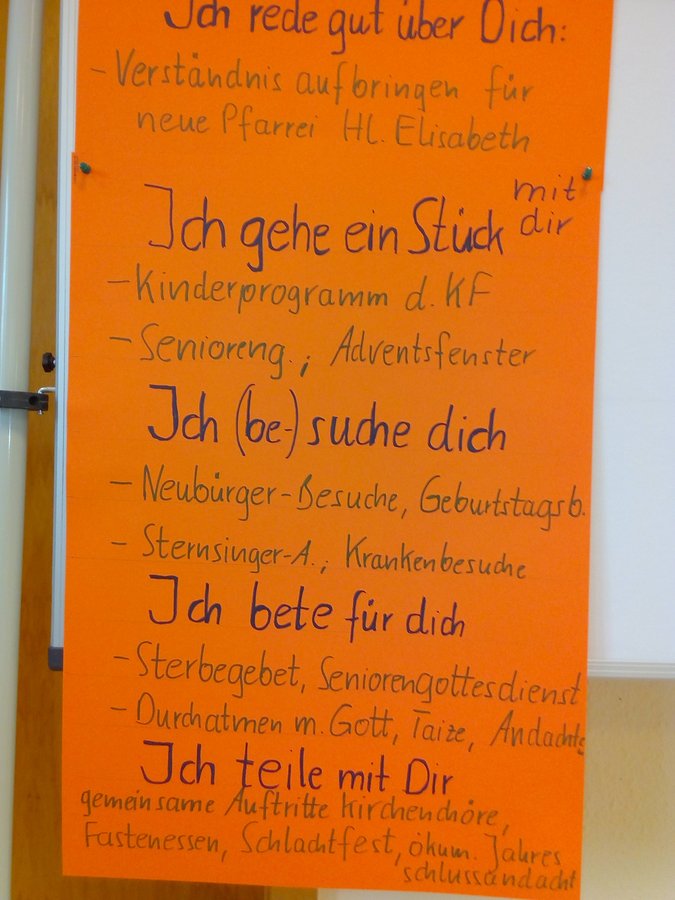 Ich rede gut über Dich:
- Verständnis aufbringen für
neue Pfarrei Hl. Elisabeth
Ich gehe ein Stück mit
dir
- Kinderprogramm d. KF
- Senioreng., Adventsfenster
Ich (be-) suche dich
- Neubürger-Besuche, Geburtstagsb.
- Sternsinger-A., Krankenbesuche
Ich bete für dich
- Sterbegebet, Seniorengottesdienst
- Durchatmen m. Gott, Taize, Andachtg
Ich teile mit Dir
gemeinsame Auftritte Kirchenchöre,
Fastenessen, Schlachtfest, ökum. Jahres
schlussandacht